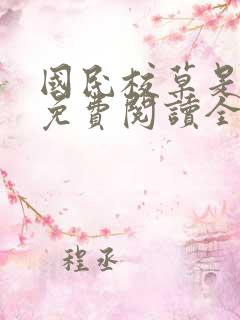 國民校草是
免費閱讀全
程丞